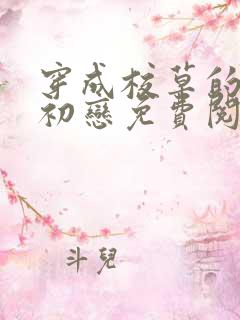 穿成校草的
初戀免費閱
斗兒